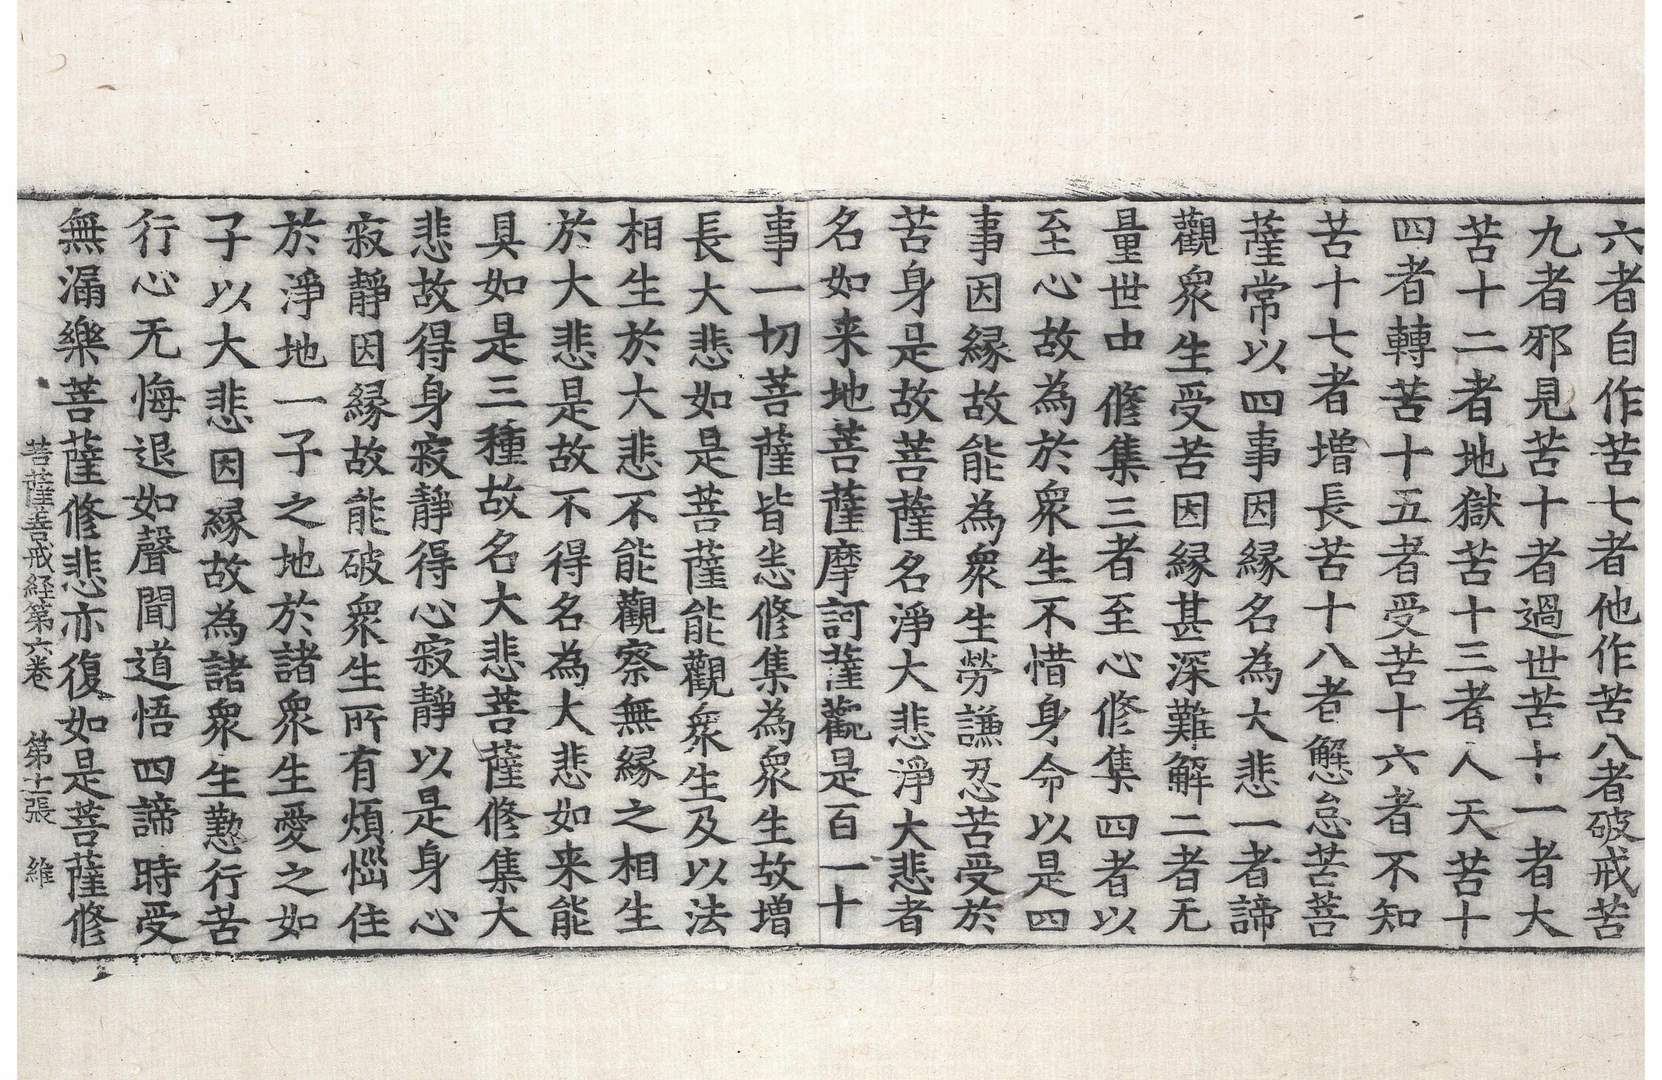 六者自作苦七者他作苦八者破戒苦
九者邪見苦十者過世苦十一者大
苦十二者地獄苦十三者人天苦十
四者轉苦十五者受苦十六者不知
苦十七者增長苦十八者懈怠苦菩
薩常以四事因緣名為大悲一者諦
觀衆生受苦因緣甚深難解二者无
量世中修集三者至心修集四者以
至心故為於衆生不惜身命以是四
事因緣故能為衆生勞謙忍苦受於
苦身是故菩薩名淨大悲淨大悲者
名如来地菩薩摩訶薩觀是百一十
事一切菩薩皆悉修集為衆生故增
長大悲如是菩薩能觀衆生及以法
相生於大悲不能觀察無緣之相生
於大悲是故不得名為大悲如来能
具如是三種故名大悲菩薩修集大
悲故得身寂靜得心寂靜以是身心
寂靜因緣故能破衆生所有煩惱住
於淨地一子之地於諸衆生愛之如
子以大悲因緣故為諸衆生懃行苦
行心无悔退如聲聞道悟四諦時受
無漏樂菩薩修悲亦復如是菩薩修
菩薩善戒経第六卷　第十二張　維